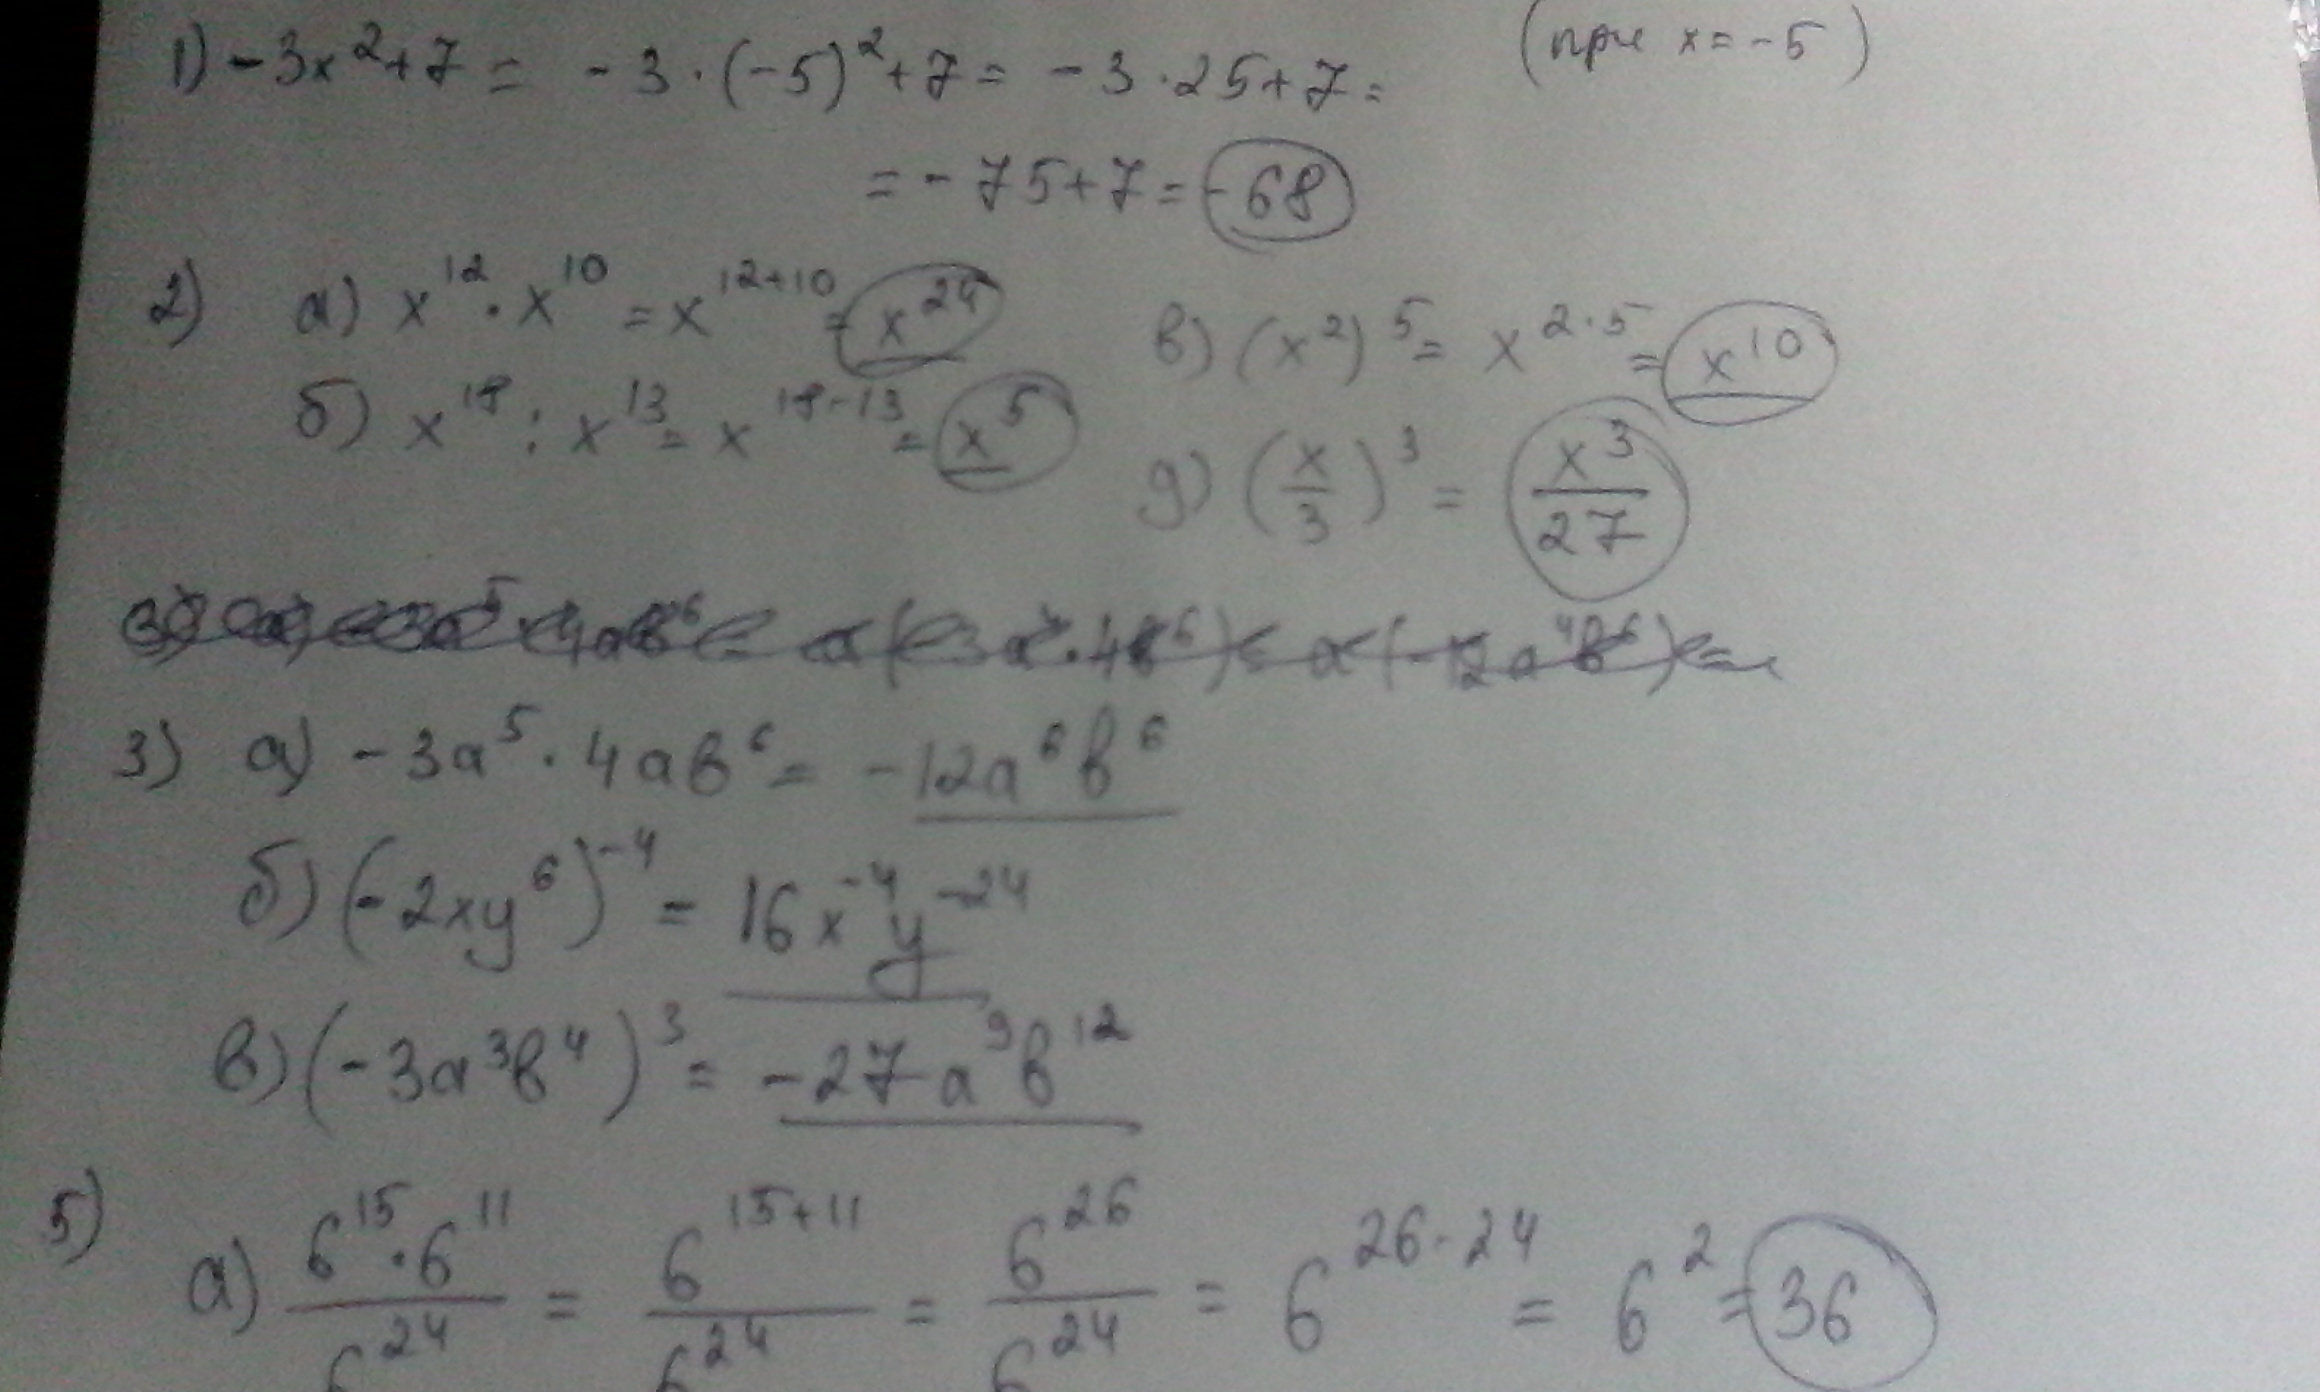 1) -3x²+7 = -3·(-5)²+7 = -3·25+7 = (при x=-5)
= -75+7 = -68
2) а) x¹²·x¹⁰ = x¹²⁺¹⁰ = x²⁴
в) (x²)⁵ = x²·⁵ = x¹⁰
б) x¹⁸ : x¹³ = x¹⁸⁻¹³ = x⁵
д) (x/3)³ = x³/27
3) а) -3a⁵·4aв⁶ = -12a⁶в⁶
б) (-2xy⁶)⁻⁴ = 16x⁻⁴y⁻²⁴
в) (-3a³в⁴)³ = -27a⁹в¹²
5) а) 6¹⁵·6¹¹/6²⁴ = 6¹⁵⁺¹¹/6²⁴ = 6²⁶/6²⁴ = 6²⁶⁻²⁴ = 6² = 36